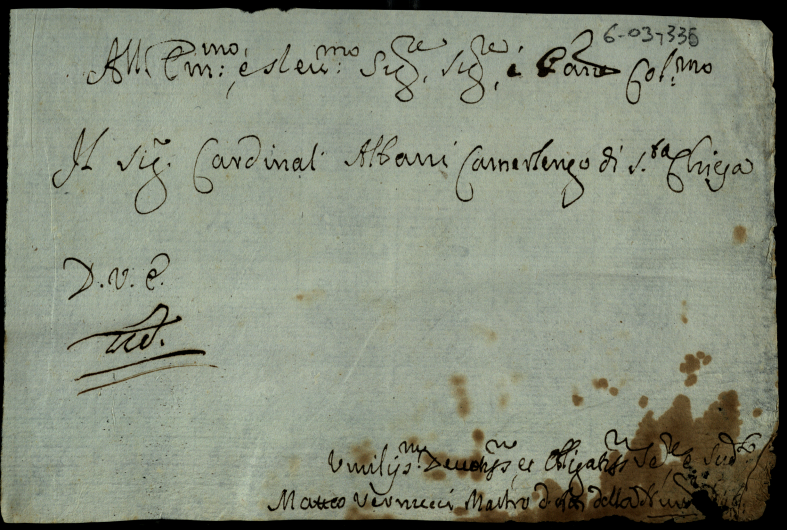 6-03-335
All Em:mo, e Rev:mo Sig:re, Sig:re, e Pane Col:mo
Il Sig: Cardinal Albani Camerlengo di S.ta Chiesa
D. V. E.
Umiliss:mo Devotiss:mo et Obligatiss:mo Se:re e Sud:to
Matteo Vernucci Mastro della